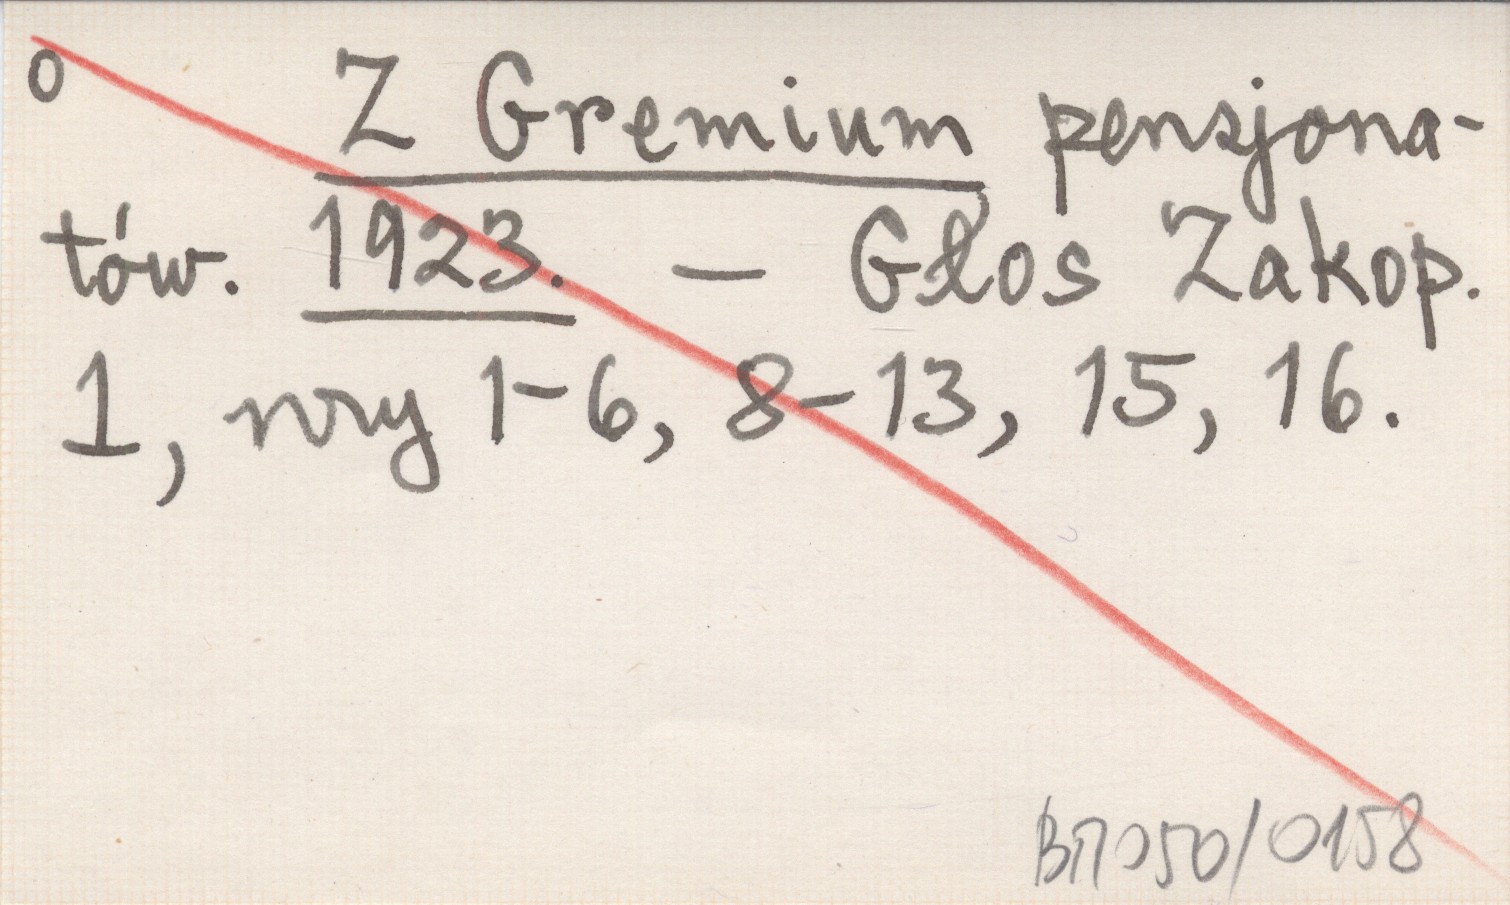 o Z Gremium pensjona-
tów. 1923. — Głos Zakop.
1, nry 1-6, 8-13, 15, 16.
BП050/0158